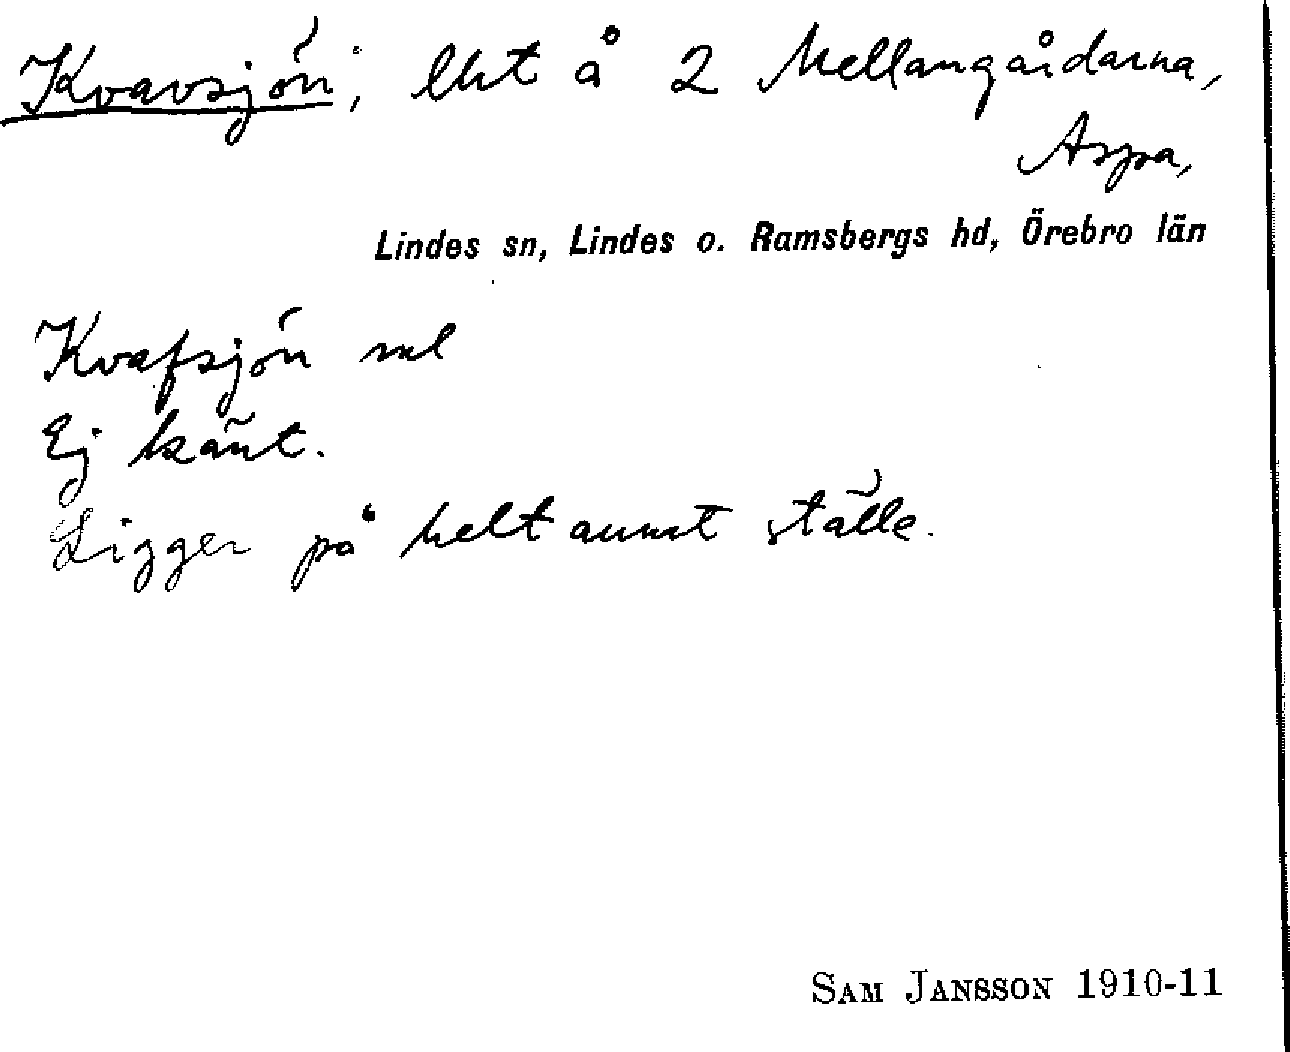 Kvavsjön; lht å 2 Mellangårdarna,
Aspa,
Lindes sn, Lindes o. Ramsbergs hd, Örebro län
Kvafsjön
Ej känt.
Ligger på helt annat ställe.
SAM JANSSON 1910-11